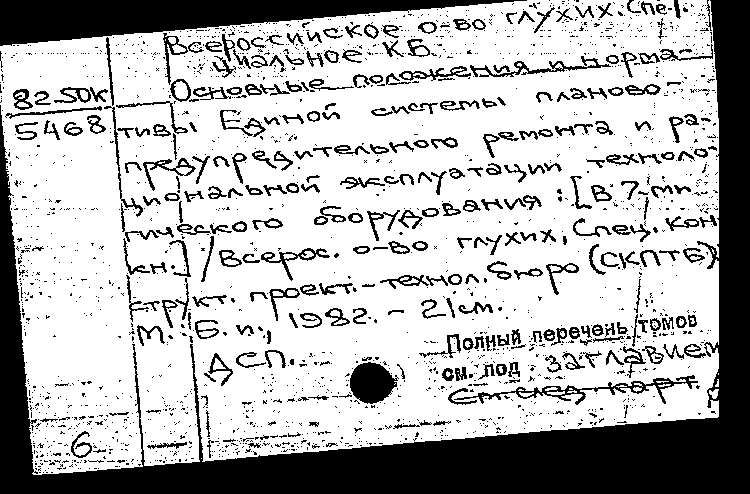 Всероссийское о-во глухих. Спе-
циальное КБ.
82-50к
5468
Основные положения и норма-
тивы Единой системы планово-
предупредительного ремонта и ра-
циональной эксплуатации техноло-
гического оборудования : [В 7-ми
кн.] / Всерос. о-во глухих, Спец. кон-
структ. проект.-технол. бюро (СКПТБ)
М. : Б. и., 1982. - 21 см.
ДСП.
Полный перечень томов
см. под заглавием
См. след. карт.
6